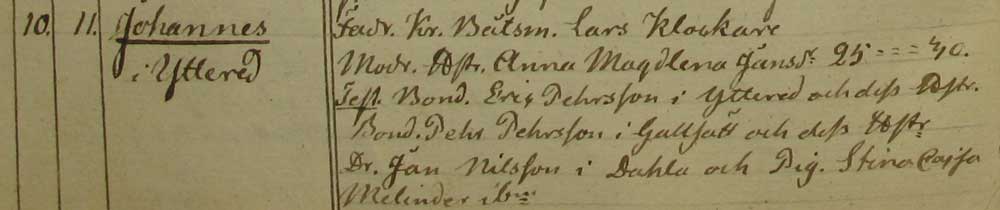 10. 11. Johannes
i Yttered
Fadr. Kr. Båtsm. Lars Klockare
Modr. Hstr. Anna Magdlena Jansdr. 25 - - - 40.
Test. Bond. Eric Pehrsson i Yttered och dess Hstr.
Bond. Pehr Pehrsson i och dess Hstr
Dr. Jan Nilsson i Dahla och Pig. Stina Cajsa
Melinder ibm